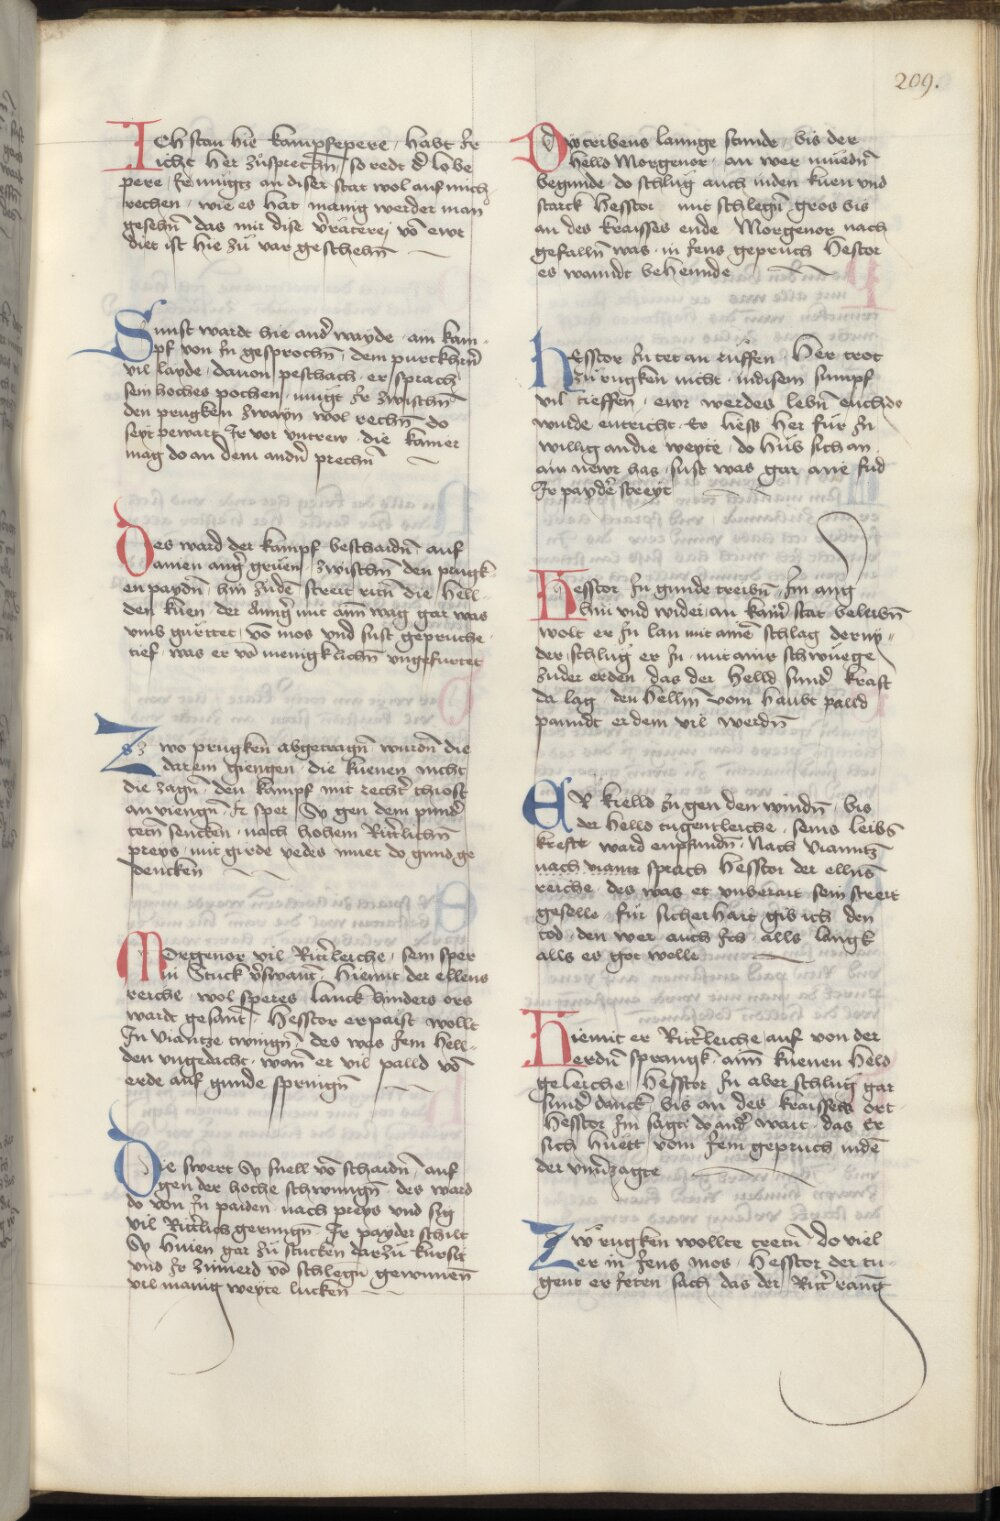 209.
Ich stan hie kampfepere · habt Ir
icht her zusprechn̄ · so redt d̓ lobe
pere · Ir mügtz an diser stat wol auf mich
rechen · wie es hat manig werder man
gesehn̄ das mir dise v̓räterej vō ewr
diet ist hie zü var geschehn̄
Sunst wardt hie and̓ wayde · ain kam
pf von In gesprochn̄ · dem purckhn̄
vil layde · dauon peschach · er sprach
sein hoches pochen · mügt Ir zwischn̄
den prugken zwayn wol rechn̄ · do
seyt pewart Ir vor vntrew · die kamer
mag do an dem andn̄ prechn̄
Des ward der kampf beschaidn̄ · auf
ainen ang̓ grüen · zwischn̄ den prugk
en paydn̄ · hin zudē streit ritn̄ die hell
den küen der Ang̓ mit aim wag gar was
vmb gürttet · vō mos vnd sust geprüche
tief · was er vō menigklichn̄ vngefurtet
Zz wo prugken abgetragn̄ wurdn̄ die
darein giengen · die küenen nicht
die zagn̄ · den kampf mit recht̓ tiost
an viengn̄ · Ir sper Sy gen dem pund̓
tetn̄ sencken · nach hohem Ritt̓lichn̄
preys · mit girde yedes muet do gund ge
dencken
Morgenor vil Ritt̓leiche · sein sper
in Stuck v̓swant · hiemit der ellens
reiche · wol speres lanck hinders ors
wardt gesant · Hesstor erpaist wollt
In viantze twingn̄ · des was sem hell
den vngedacht · wan̄ er vil palld vō
erde auf gunde springn̄
Die swert Sy snell vō schaidn̄ · auf
gen der hoche schwungn̄ · des ward
do von In paiden · nach preys vnd sig
vil Ritt̓lich gerungn̄ · Ir payder schilt
Sy huien gar zü stucken darzü kursit
vnd Ir zimierd vō schlegn̄ gewunnen
vil manig weyte lucken
Do tribens lannge stunde · bis der
helld Morgenor · an wer müedn̄
begunde · do schlüg auch inden küen vnd
starck Hesstor mit schlegn̄ gros bis
an des kraisses ende Morgenor nach
gefalln̄ was · in Iens geprüch Hestor
es wanndt behennde
Hesstor In tet an rüffen · Her trot
zü rugken nicht · indisem sumpf
vil tieffen · ewr werdes lebn̄ euch do
wurde entricht · Er liess her für In
willig an die weyte · do hüb sich an
ain newr has · sust was gar ane frid
Ir payd̓ streyt
Hesstor In gunde treibn̄ · Im ang
hin vnd wider · an kain̓ stat beleibn̄
wolt er In lan mit ainē schlag dernÿ
der schlüg er In · mit ainr schwüege
zuder erden das der helld sund̓ kraft
da lag den hellm̄ vom haubt palld
panndt er dem vil werdn̄
Er hielld In gen den windn̄ · bis
der helld tugentleiche · seins leibs
krefte ward enpfundn̄ · Nach vianntz
nach vianntz sprach Hesstor der ellns
reiche · des was er vnberait sein streit
geselle · für sicherhait gib ich den
tod · den wer auch Ich · alls langk
alls es got welle
Hiemit er Ritt̓leiche · auf von der
erdn̄ sprangk · aim küenen held
geleiche · Hesstor In aber schlüg gar
sund̓ danck bis an des kraisses ort
Hesstor Im sagt do and̓ wait · das Er
sich huett vom Iem geprüch indē
der vnu̓zagte
Zw rugken wollte tretn̄ · do viel
er in Iens mos · Hesstor der tu
gent er Ieten sach das der Ritt̓ rang